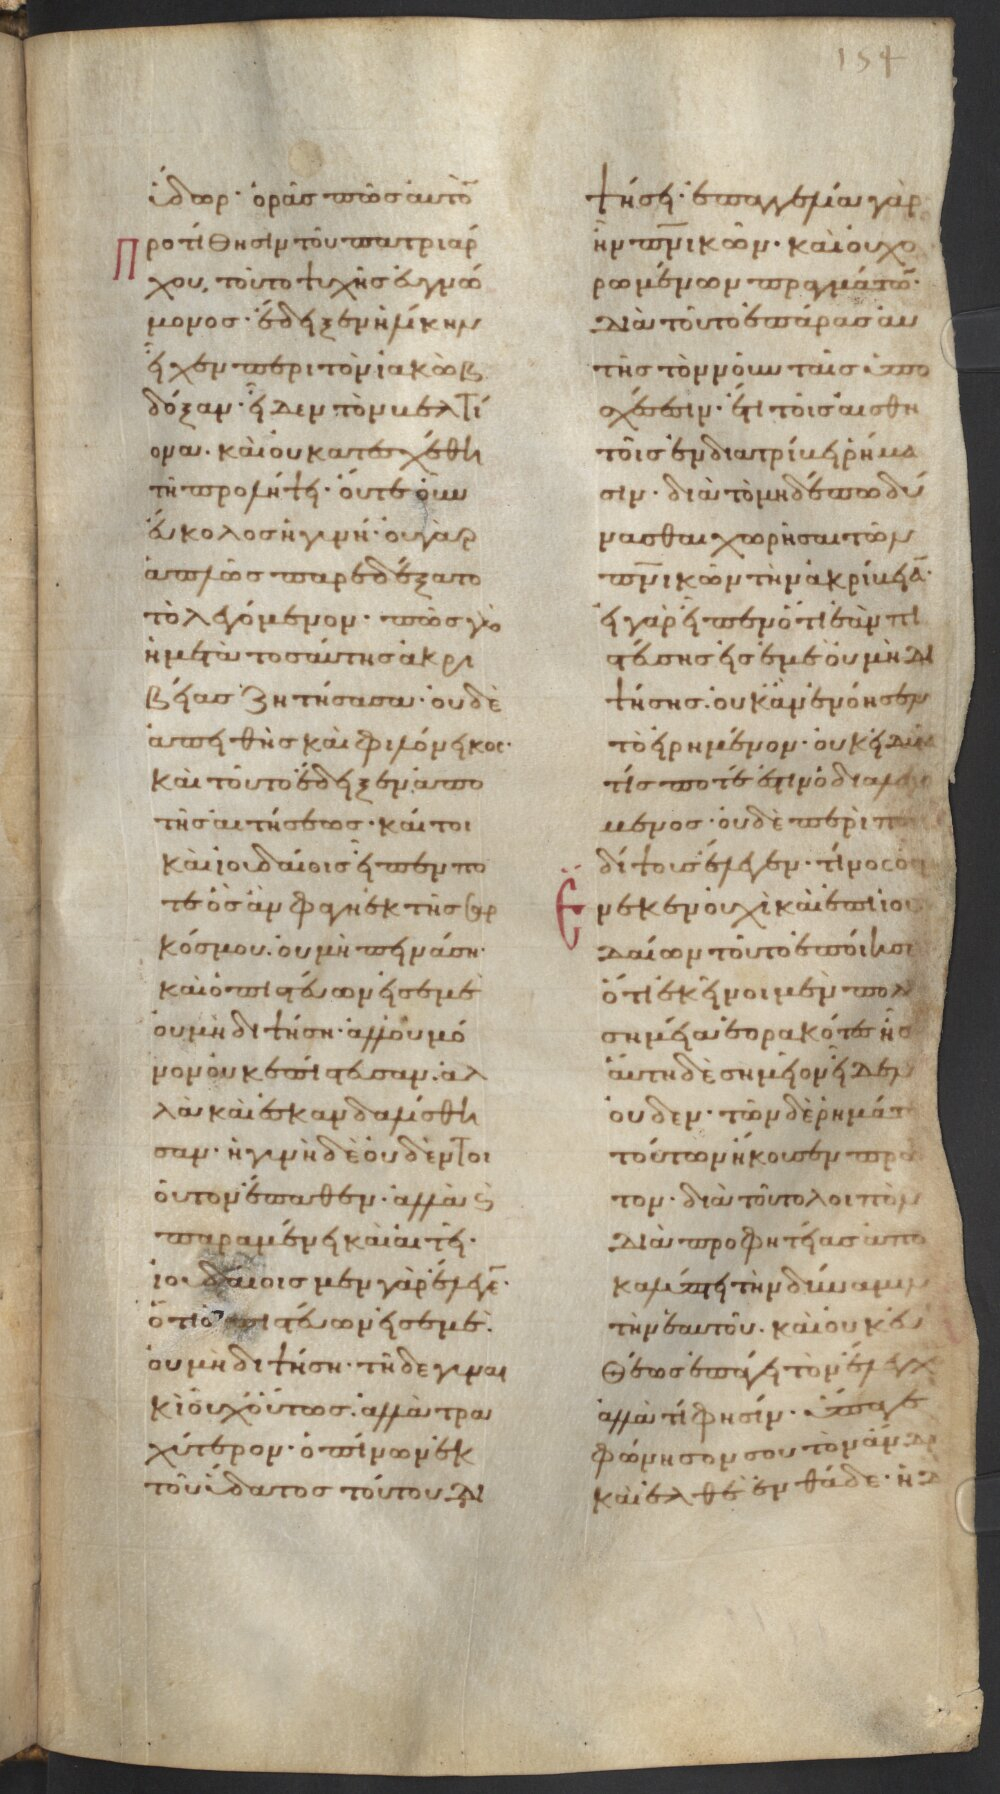 154
ὕδωρ· ὁρᾶς πῶς αὐτὸ͂
προτίθησιν τοῦ πατριάρ
χου, τοῦτο ψυχῆς εὐγνώ
μονος· ἔδειξεν ἡλίκην
εἶχεν περὶ τὸν ἰακὼβ
δόξαν· εἶδεν τὸν βελτί
ονα· καὶ οὐ κατεσχέθη
τῆ προλήψει· οὔτε οὖν
εὔκολος ἡ γυνή· οὐ γὰρ
ἁπλῶς παρεδέξατο
τὸ λεγόμενον· πῶς γὰρ
ἡ μετὰ τοσαύτης ἀκρι
βείας ζητήσασα· οὐδὲ
ἀπειθὴς καὶ φιλόνεικος·
καὶ τοῦτο ἔδειξεν ἀπὸ
τῆς αἰτήσεως· καί τοι
καὶ ἰουδαίοις εἶπεν πο
τε ὃς ἂν φάγη ἐκ τῆς σαρ
κός μου. οὐ μὴ πεινάση·
καὶ ὁ πιστεύων εἰς ἐμὲ
οὐ μὴ διψήση· ἀλλ' οὐ μό
νον οὐκ ἐπίστευσαν. ἀλ
λὰ καὶ ἐσκανδαλίσθη
σαν· ἡ γυνὴ δὲ οὐδὲν τοι
οῦτον ἔπαθεν· ἀλλὰ καὶ
παραμένει καὶ αἰτεῖ·
ἰουδαίοις μεν γὰρ ἔλεγε̄·
ὅτι ὁ πιστεύων εἰς ἐμὲ.
οὐ μὴ διψήση· τῆ δε γυναι
κὶ οὐχ οὕτως. ἀλλὰ πα
χύτερον· ὁ πίνων ἐκ
τοῦ ὕδατος τούτου. δι
ψήσει· ἐπαγγελία γὰρ
ἦν πν̅ικῶν· καὶ οὐχ ὁ
ρωμένων πραγμάτω̄·
διὰ τοῦτο ἐπάρας αὐ
τῆς τὸν νοῦν ταῖς ὑπο
σχέσεσιν· ἔτι τοῖς αἰσθη
τοῖς ἐνδιατρίβει ῥήμα
σιν· διὰ τὸ μηδέπω δύ
νασθαι χωρῆσαι τῶν
πν̅ικῶν τὴν ἀκρίβειᾱ·
εἰ γὰρ εἶπεν ὅτι ἐὰν πι
στεύσης εἰς ἐμὲ οὐ μὴ δι
ψήσης. οὐκ ἂν ἐνόησεν
τὸ εἰρημένον· οὐκ εἰδυῖα
τίς ποτέ ἐστιν ὁ διαλεγό
μενος· οὐδὲ περὶ ποίου
δίψους ἔλεγεν· τίνος οὖν
ἕνεκεν οὐχὶ καὶ ἐπὶ ἰου
δαίων τοῦτο ἐποίησεν
ὅτι ἐκεῖνοι μὲν πολλὰ
σημεῖα ἑορακότες ἦσαν
αὕτη δὲ σημεῖον εἶδεν
οὐδεν· τῶν δὲ ῥημάτων
τούτων ἤκουσεν πρῶ
τον· διὰ τοῦτο λοιπὸν
διὰ προφητείας ἀπο
καλύπτει τὴν δύναμιν
τὴν ἑαυτοῦ. καὶ οὐκ εὐ
θέως ἐπάγει τὸν ἔλεγχο
ἀλλὰ τί φησίν. ὕπαγε
φώνησον σου τὸν ἄνδρα
καὶ ἐλθὲ ἐνθάδε· ἡ δ